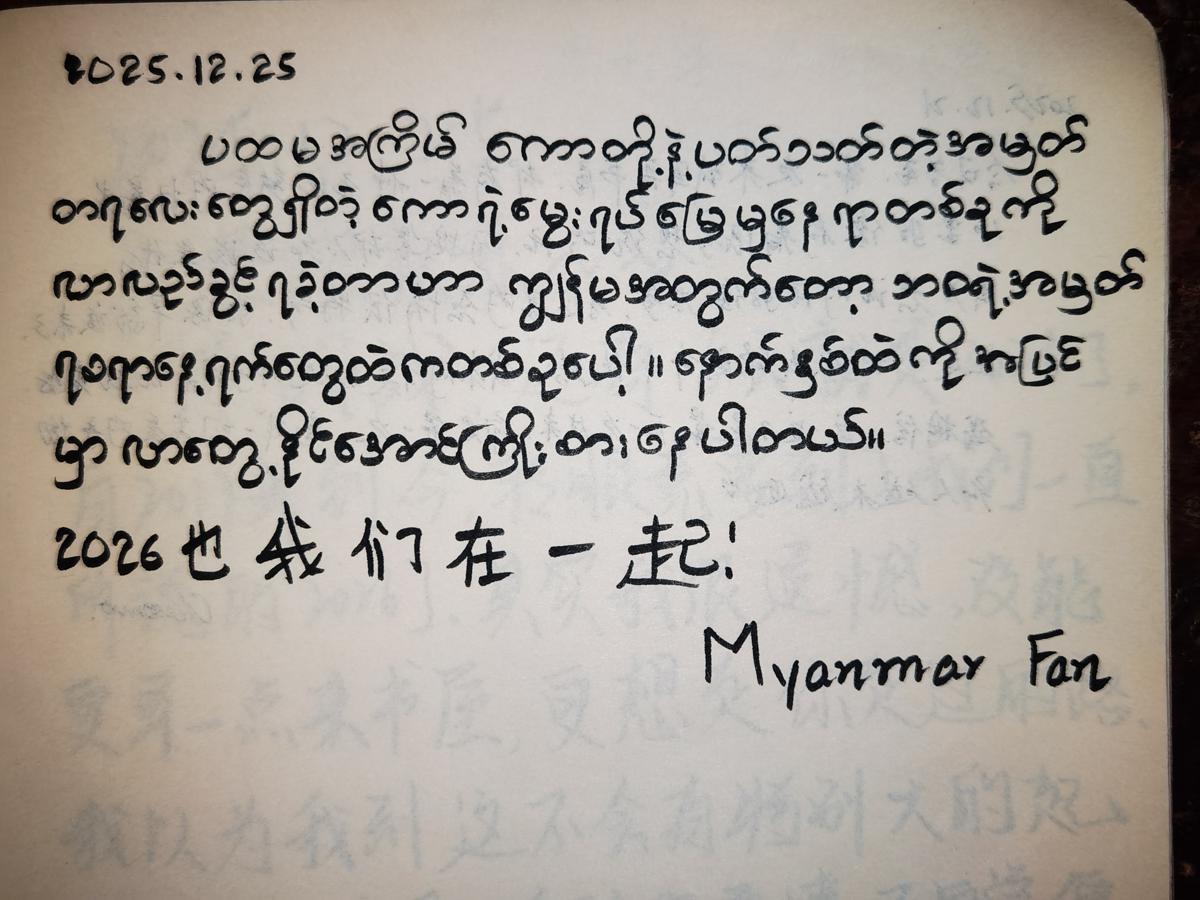 2025.12.25
ပထမအကြိမ် ကောတို့နဲ့ပတ်သတ်တဲ့အမှတ်
တရလေးတွေရှိတဲ့ ကောရဲ့မွေးရပ်မြေမှနေရာတစ်ခုကို
လာလည်ခွင့်ရခဲ့တာဟာ ကျွန်မအတွက်တော့ ဘဝရဲ့အမှတ်
ရစရာနေ့ရက်တွေထဲကတစ်ခုပေါ့။ နောက်နှစ်ထဲကိုအပြင်
မှာလာတွေ့နိုင်အောင်ကြိုးစားနေပါတယ်။
2026也我们在一起!
Myanmar Fan